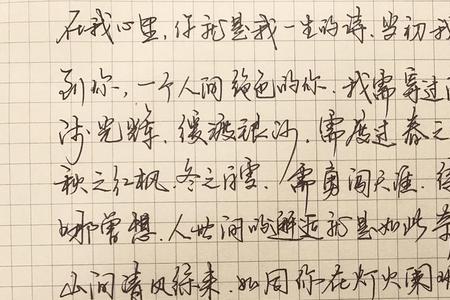 在我心里，你就是我一生的诗，当初我
到你，一个人间绝色的你，我需穿过
涉光辉，缓渡银河，需度过春之
秋之红枫，冬之白雪，需勇闯天涯，
哪曾想，人世间的邂逅就是如此奇
山间清风徐来，如同你在灯火阑珊